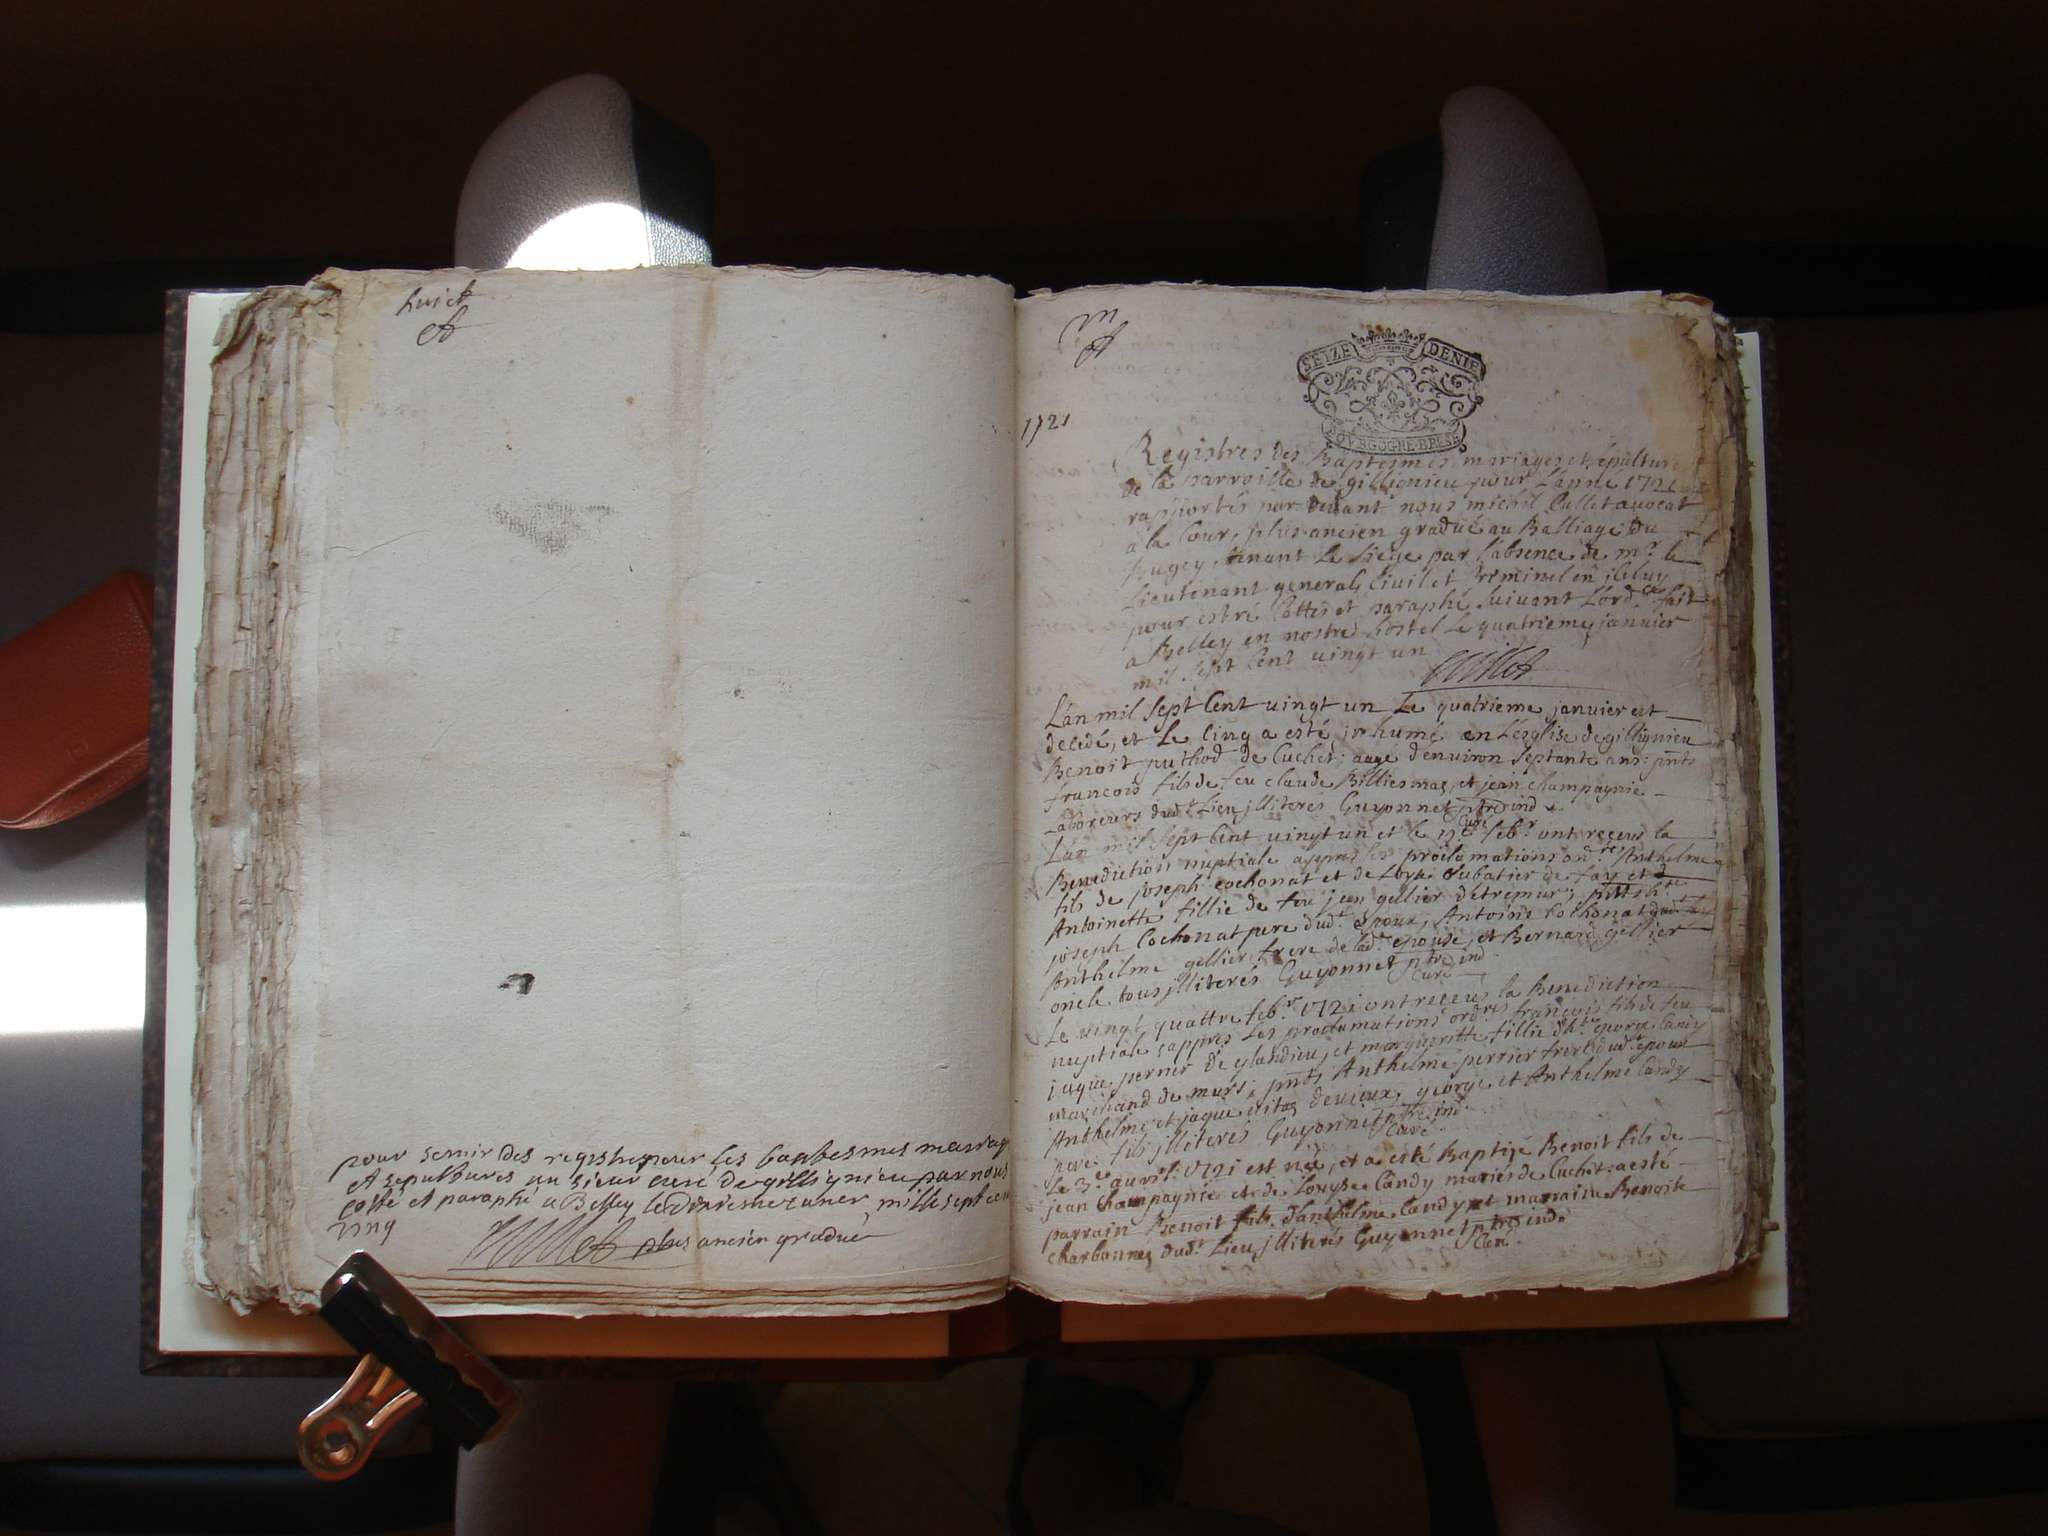 huict
pour servir des registres pour les baptesmes mariag
et sepultures au sieur curé de gillignieu par nous
cotté et paraphé a Belley le janvier mille sept cen
vingt
plus ancien gradué
1721
SEIZE DENIE
BOVRGOGNE·BRESSE
Registres des Baptesmes mariages et sepulture
de la parroisse de gillignieu pour L'anné 1721
rapportés par devant nous michel Cullet avocat
a la Cour, plus ancien gradué au Balliage du
Bugey, tenant Le siege par l'absence de mr. le
Lieutenant general Civil et Criminel en iceluy
pour estre Cottés et paraphé suivant L'ordce. fait
a Belley en nostre hostel Le quatrieme janvier
mil sept Cent vingt un
L'an mil sept Cent vingt un Le quatrieme janvier est
decedé, et Le cinq a esté inhumé en L'esglise de gillignieu
Benoit puthod de Cuchet; aagé d'environ septante ans: pnts
francois fils de feu claude Billiemas, et jean champagnie
Laboreurs dudt Lieu jlliterés Guyonnet ptre ind
Curé
L'an mil sept Cent vingt un et le febr. ont reçeus la
Benediction nuptiale appres les proclamations ordres Anthelme
fils de joseph cochonat et de Subatier de fay et d
Antoinette fillie de feu jean gellier detremur; pnts ht.
joseph Cochonat pere dudt. Epoux, Antoine Cochonat
Anthelme gellier frere de ladt. epouse, et Bernard gellier
oncle tous jlliterés Guyonnet ptre ind
Curé
Le vingt quattre febr. 1721 ont reçeus la Benediction
nuptiale appres Les proclamations ordres francois fils de feu
jaque perrier de glandieu, et marguerite fillie d'ht. george Candy
marchand de murs; pnts Anthelme perrier frere dudt. epoux
Anthelme et jaque devieux, george et Anthelme Candy
pere fils jlliterés Guyonnet ptre ind
Curé
Le 3e. avril 1721 est née, et a esté Baptizé Benoit fils de
jean champagnie et de Louyse Candy mariés de Cuchet: a esté
parrain Benoit fils d'anthelme Candy et marraine Benoite
charbonnes dudt. Lieu jlliterés Guyonnet ptre ind